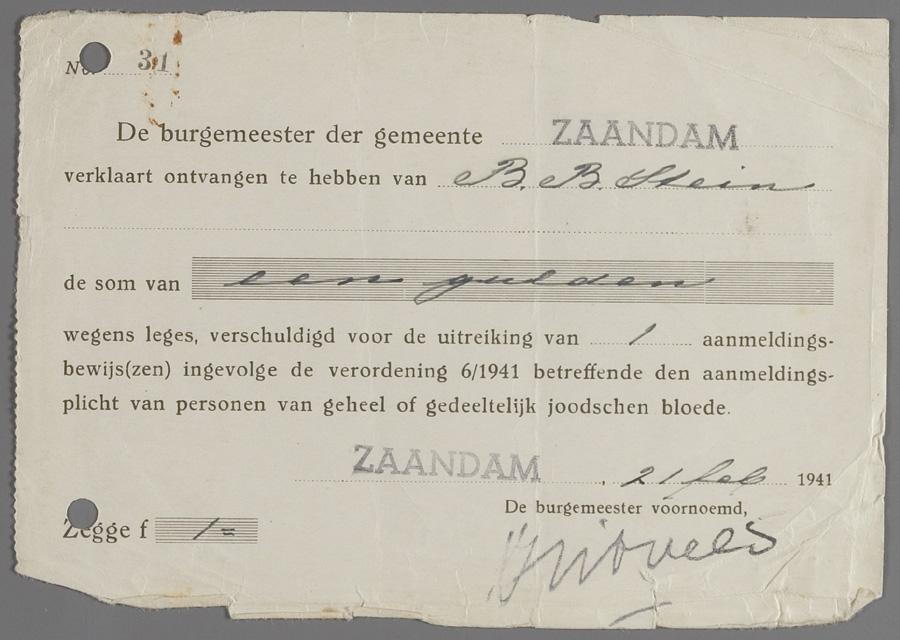 No. 31
De burgemeester der gemeente ZAANDAM
verklaart ontvangen te hebben van B. B Stein
de som van een gulden
wegens leges, verschuldigd voor de uitreiking van 1 aanmeldings-
bewijs(zen) ingevolge de verordening 6/1941 betreffende den aanmeldings-
plicht van personen van geheel of gedeeltelijk joodschen bloede.
ZAANDAM, 21 feb 1941
De burgemeester voornoemd,
Zegge f 1=